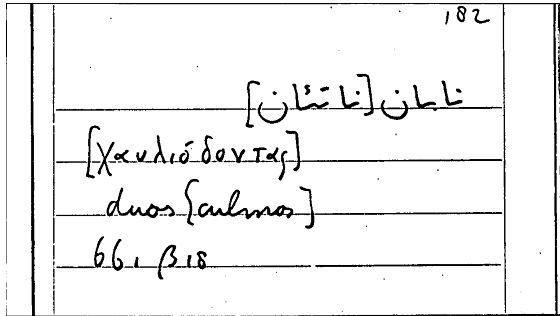 182
نابان [ناتئان]
[χαυλιόδοντας]
duos [culmos]
661 β 18